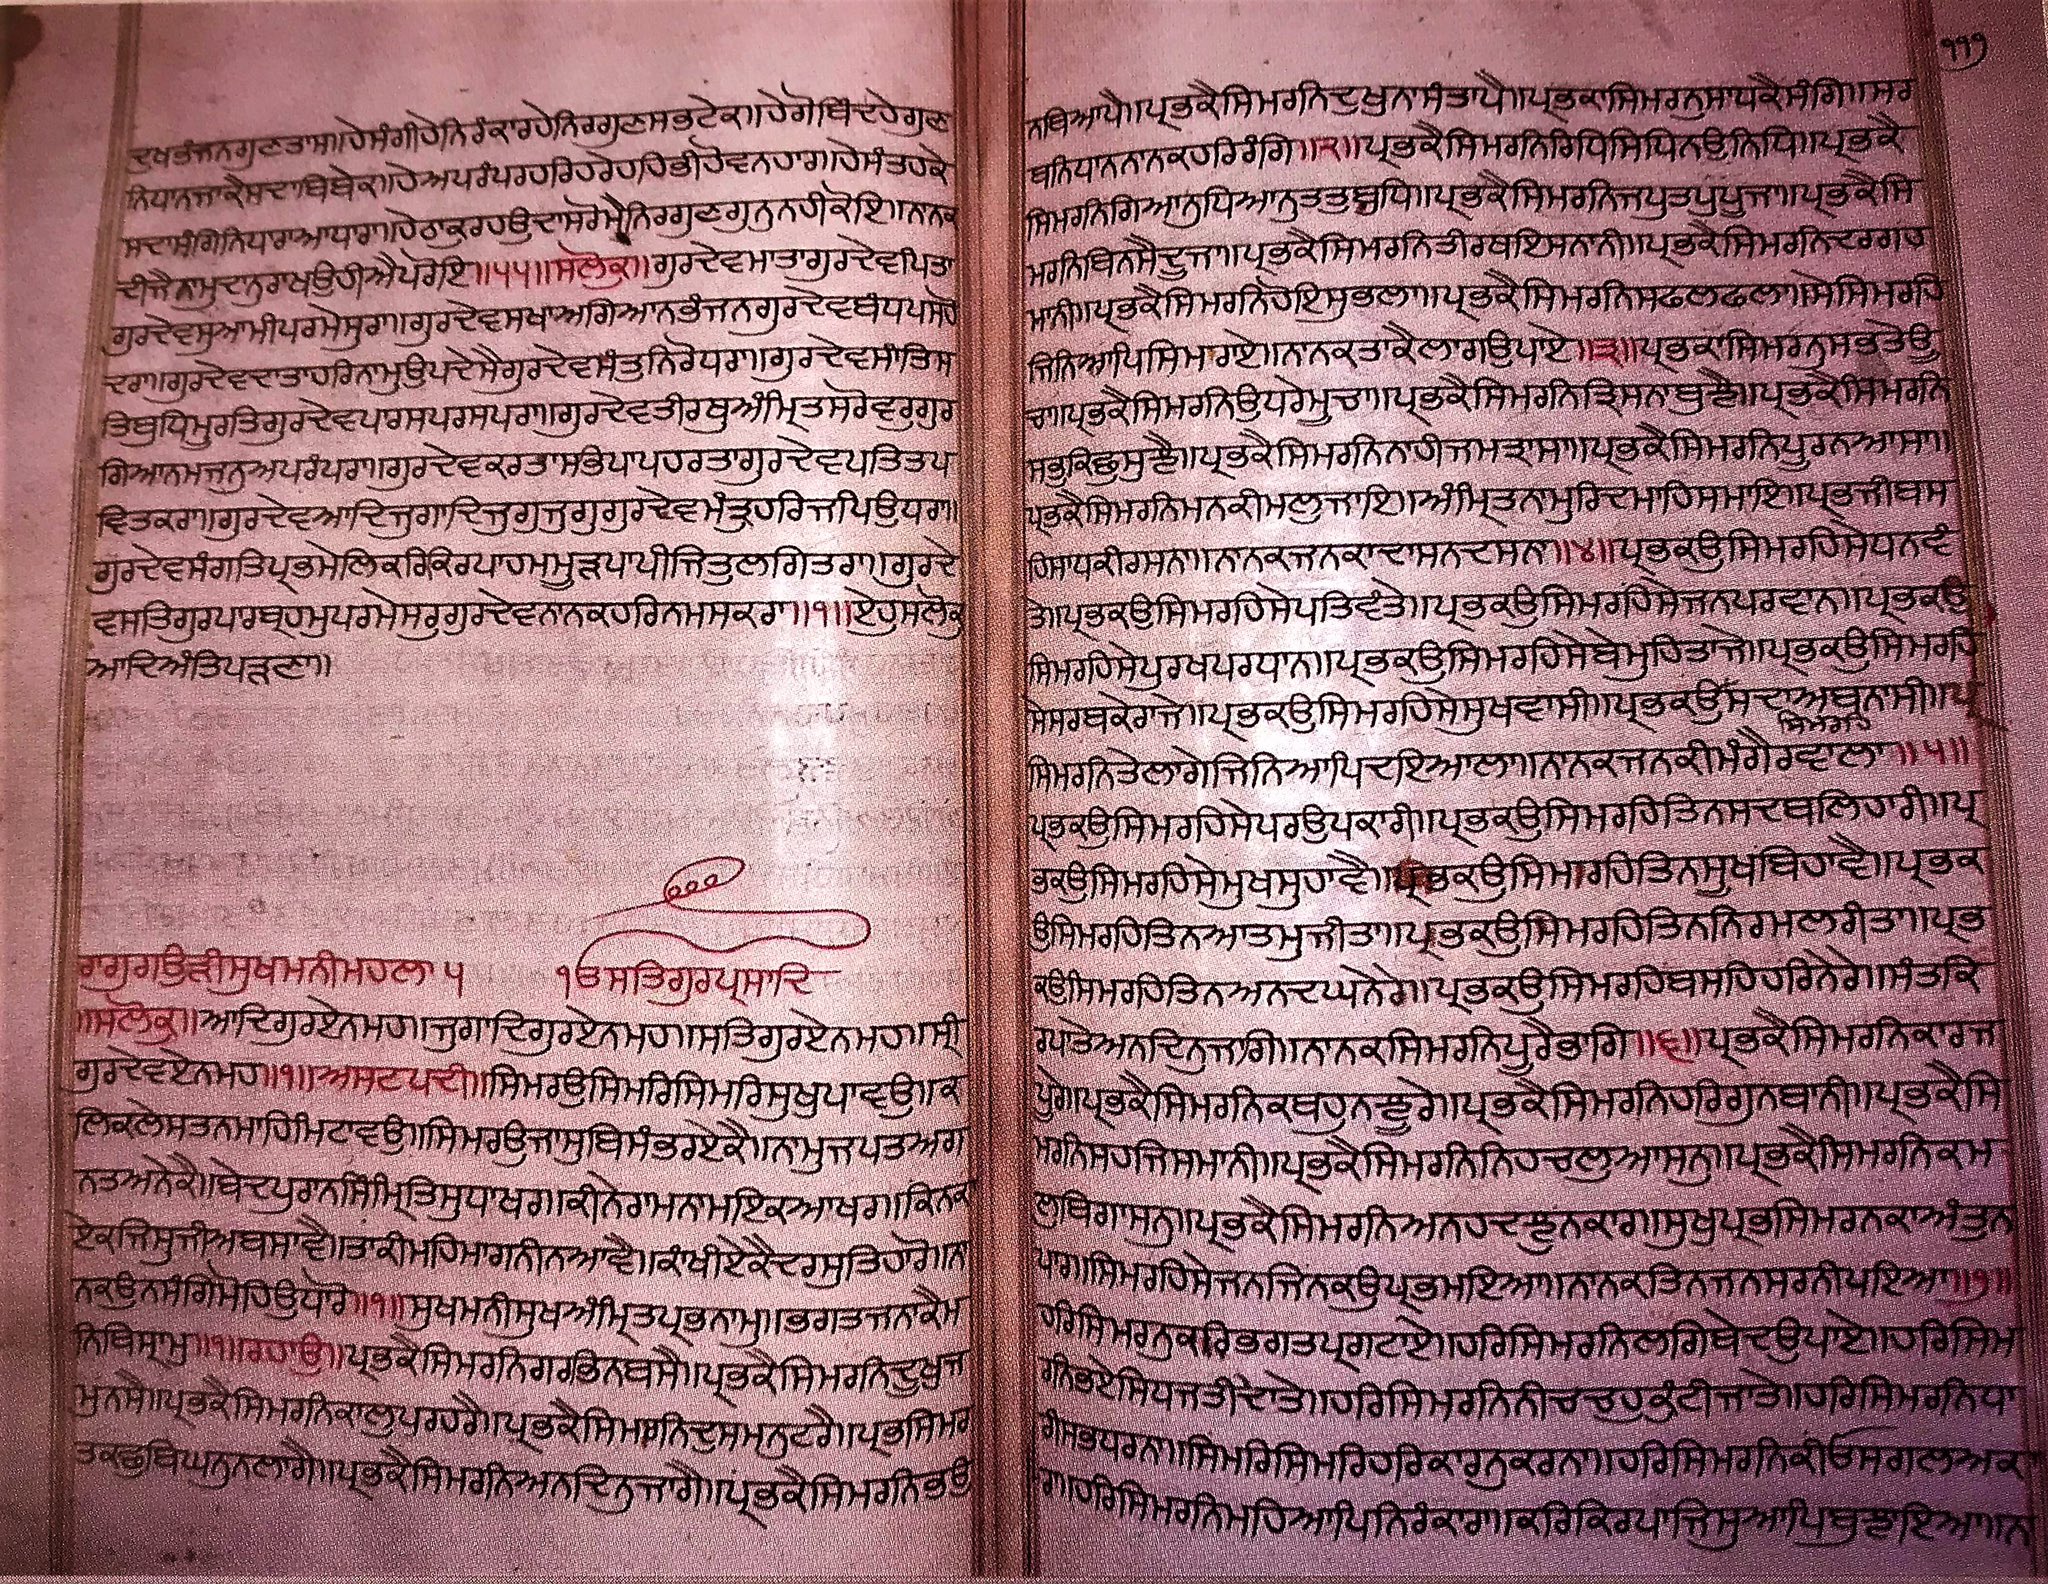 ਦੁਖਭੰਜਨਗੁਣਤਾਸ॥ਹੇਸੰਗੀਹੇਨਿਰੰਕਾਰਹੇਨਿਰਗੁਣਸਭਟੇਕ॥ਹੇਗੋਬਿਦਹੇਗੁਣ
ਨਿਧਾਨਜਾਕੈਸਦਾਬਿਬੇਕ॥ਹੇਅਪਰੰਪਰਹਰਿਹਰੇਹਹਿਭੀਹੋਵਨਹਾਰ॥ਹੇਸੰਤਹਕੇ
ਸਦਾਸੰਗਿਨਿਧਾਰਾਆਧਾਰ॥ਹੇਠਾਕੁਰਹਉਦਾਸਰੋਮੈਨਿਰਗੁਣਗੁਨੁਨਹੀਕੋਇ॥ਨਾਨਕ
ਦੀਜੈਨਾਮੁਦਾਨੁਰਾਖਉਹੀਐਪਰੋਇ॥੫੫॥ਸਲੋਕੁ॥ਗੁਰਦੇਵਮਾਤਾਗੁਰਦੇਵਪਿਤਾ
ਗੁਰਦੇਵਸੁਆਮੀਪਰਮੇਸੁਰਾ॥ਗੁਰਦੇਵਸਖਾਅਗਿਆਨਭੰਜਨਗੁਰਦੇਵਬੰਧਪਸਹੋ
ਦਰਾ॥ਗੁਰਦੇਵਦਾਤਾਹਰਿਨਾਮੁਉਪਦੇਸੈਗੁਰਦੇਵਮੰਤੁਨਿਰੋਧਰਾ॥ਗੁਰਦੇਵਸਾਂਤਿਸ
ਤਿਬੁਧਿਮੂਰਤਿਗੁਰਦੇਵਪਾਰਸਪਰਸਪਰਾ॥ਗੁਰਦੇਵਤੀਰਥੁਅੰਮ੍ਰਿਤਸਰੋਵਰੁਗੁਰ
ਗਿਆਨਮਜਨੁਅਪਰੰਪਰਾ॥ਗੁਰਦੇਵਕਰਤਾਸਭਿਪਾਪਹਰਤਾਗੁਰਦੇਵਪਤਿਤਪ
ਵਿਤਕਰਾ॥ਗੁਰਦੇਵਆਦਿਜੁਗਾਦਿਜੁਗੁਜੁਗੁਗੁਰਦੇਵਮੰਤ੍ਰੁਹਰਿਜਪਿਉਧਰਾ॥
ਗੁਰਦੇਵਸੰਗਤਿਪ੍ਰਭਮੇਲਿਕਰਿਕਿਰਪਾਹਮਮੂੜਪਾਪੀਜਿਤੁਲਗਿਤਰਾ॥ਗੁਰਦੇ
ਵਸਤਿਗੁਰਪਾਰਬ੍ਰਹਮੁਪਰਮੇਸਰੁਗੁਰਦੇਵਨਾਨਕਹਰਿਨਮਸਕਰਾ॥੧॥ਏਹੁਸਲੋਕੁ
ਆਦਿਅੰਤਿਪੜਣਾ॥
ਰਾਗੁਗਉੜੀਸੁਖਮਨੀਮਹਲਾ੫ ੴਸਤਿਗੁਰਪ੍ਰਸਾਦਿ
॥ਸਲੋਕੁ॥ਆਦਿਗੁਰਏਨਮਹ॥ਜੁਗਾਦਿਗੁਰਏਨਮਹ॥ਸਤਿਗੁਰਏਨਮਹ॥ਸ੍ਰੀ
ਗੁਰਦੇਵਏਨਮਹ॥੧॥ਅਸਟਪਦੀ॥ਸਿਮਰਉਸਿਮਰਿਸਿਮਰਿਸੁਖੁਪਾਵਉ॥ਕ
ਲਿਕਲੇਸਤਨਮਾਹਿਮਿਟਾਵਉ॥ਸਿਮਰਉਜਾਸੁਬਿਸੰਭਰਏਕੈ॥ਨਾਮੁਜਪਤਅਗ
ਨਤਅਨੇਕੈ॥ਬੇਦਪੁਰਾਨਸਿੰਮ੍ਰਿਤਿਸੁਧਾਖਰ॥ਕੀਨੇਰਾਮਨਾਮਇਕਆਖਰ॥ਕਿਨਕਾ
ਏਕਜਿਸੁਜੀਅਬਸਾਵੈ॥ਤਾਕੀਮਹਿਮਾਗਨੀਨਆਵੈ॥ਕਾਂਖੀਏਕੈਦਰਸੁਤਿਹਾਰੋ॥ਨਾ
ਨਕਉਨਸੰਗਿਮੋਹਿਉਧਾਰੋ॥੧॥ਸੁਖਮਨੀਸੁਖਅੰਮ੍ਰਿਤਪ੍ਰਭਨਾਮੁ॥ਭਗਤਜਨਾਕੈਮ
ਨਿਬਿਸ੍ਰਾਮੁ॥੧॥ਰਹਾਉ॥ਪ੍ਰਭਕੈਸਿਮਰਨਿਗਰਭਿਨਬਸੈ॥ਪ੍ਰਭਕੈਸਿਮਰਨਿਦੂਖੁਜ
ਮੁਨਸੈ॥ਪ੍ਰਭਕੈਸਿਮਰਨਿਕਾਲੁਪਰਹਰੈ॥ਪ੍ਰਭਕੈਸਿਮਰਨਿਦੁਸਮਨੁਟਰੈ॥ਪ੍ਰਭਸਿਮਰ
ਤਕਛੁਬਿਘਨੁਨਲਾਗੈ॥ਪ੍ਰਭਕੈਸਿਮਰਨਿਅਨਦਿਨੁਜਾਗੈ॥ਪ੍ਰਭਕੈਸਿਮਰਨਿਭਉ
੧੧੧
ਨਬਿਆਪੈ॥ਪ੍ਰਭਕੈਸਿਮਰਨਿਦੁਖੁਨਸੰਤਾਪੈ॥ਪ੍ਰਭਕਾਸਿਮਰਨੁਸਾਧਕੈਸੰਗਿ॥ਸਰ
ਬਨਿਧਾਨਨਾਨਕਹਰਿਰੰਗਿ॥੨॥ਪ੍ਰਭਕੈਸਿਮਰਨਿਰਿਧਿਸਿਧਿਨਉਨਿਧਿ॥ਪ੍ਰਭਕੈ
ਸਿਮਰਨਿਗਿਆਨੁਧਿਆਨੁਤਤੁਬੁਧਿ॥ਪ੍ਰਭਕੈਸਿਮਰਨਿਜਪਤਪਪੂਜਾ॥ਪ੍ਰਭਕੈਸਿ
ਮਰਨਿਬਿਨਸੈਦੂਜਾ॥ਪ੍ਰਭਕੈਸਿਮਰਨਿਤੀਰਥਇਸਨਾਨੀ॥ਪ੍ਰਭਕੈਸਿਮਰਨਿਦਰਗਹ
ਮਾਨੀ॥ਪ੍ਰਭਕੈਸਿਮਰਨਿਹੋਇਸੁਭਲਾ॥ਪ੍ਰਭਕੈਸਿਮਰਨਿਸਫਲਫਲਾ॥ਸੇਸਿਮਰਹਿ
ਜਿਨਆਪਿਸਿਮਰਾਏ॥ਨਾਨਕਤਾਕੈਲਾਗਉਪਾਏ॥੩॥ਪ੍ਰਭਕਾਸਿਮਰਨੁਸਭਤੇਊ
ਚਾ॥ਪ੍ਰਭਕੈਸਿਮਰਨਿਉਧਰੇਮੂਚਾ॥ਪ੍ਰਭਕੈਸਿਮਰਨਿਤ੍ਰਿਸਨਾਬੁਝੈ॥ਪ੍ਰਭਕੈਸਿਮਰਨਿ
ਸਭੁਕਿਛੁਸੁਝੈ॥ਪ੍ਰਭਕੈਸਿਮਰਨਿਨਾਹੀਜਮਤ੍ਰਾਸਾ॥ਪ੍ਰਭਕੈਸਿਮਰਨਿਪੂਰਨਆਸਾ॥
ਪ੍ਰਭਕੈਸਿਮਰਨਿਮਨਕੀਮਲੁਜਾਇ॥ਅੰਮ੍ਰਿਤਨਾਮੁਰਿਦਮਾਹਿਸਮਾਇ॥ਪ੍ਰਭਜੀਬਸ
ਹਿਸਾਧਕੀਰਸਨਾ॥ਨਾਨਕਜਨਕਾਦਾਸਨਦਸਨਾ॥੪॥ਪ੍ਰਭਕਉਸਿਮਰਹਿਸੇਧਨਵੰ
ਤੇ॥ਪ੍ਰਭਕਉਸਿਮਰਹਿਸੇਪਤਿਵੰਤੇ॥ਪ੍ਰਭਕਉਸਿਮਰਹਿਸੇਜਨਪਰਵਾਨ॥ਪ੍ਰਭਕਉ
ਸਿਮਰਹਿਸੇਪੁਰਖਪਰਧਾਨ॥ਪ੍ਰਭਕਉਸਿਮਰਹਿਸੇਬੇਮੁਹਤਾਜੇ॥ਪ੍ਰਭਕਉਸਿਮਰਹਿ
ਸੇਸਰਬਕੇਰਾਜੇ॥ਪ੍ਰਭਕਉਸਿਮਰਹਿਸੇਸੁਖਵਾਸੀ॥ਪ੍ਰਭਕਉਸਦਾਅਬਨਾਸੀ॥ਪ੍ਰ
ਸਿਮਰਹਿ
ਸਿਮਰਨਿਤੇਲਾਗੇਜਿਨਿਆਪਿਦਇਆਲਾ॥ਨਾਨਕਜਨਕੀਮੰਗੈਰਵਾਲਾ॥੫॥
ਪ੍ਰਭਕਉਸਿਮਰਹਿਸੇਪਰਉਪਕਾਰੀ॥ਪ੍ਰਭਕਉਸਿਮਰਹਿਤਿਨਸਦਬਲਿਹਾਰੀ॥ਪ੍ਰ
ਭਕਉਸਿਮਰਹਿਸੇਮੁਖਸੁਹਾਵੈ॥ਪ੍ਰਭਕਉਸਿਮਰਹਿਤਿਨਸੂਖਬਿਹਾਵੈ॥ਪ੍ਰਭਕ
ਉਸਿਮਰਹਿਤਿਨਆਤਮੁਜੀਤਾ॥ਪ੍ਰਭਕਉਸਿਮਰਹਿਤਿਨਨਿਰਮਲਰੀਤਾ॥ਪ੍ਰਭ
ਕਉਸਿਮਰਹਿਤਿਨਅਨਦਘਨੇਰੇ॥ਪ੍ਰਭਕਉਸਿਮਰਹਿਬਸਹਿਹਰਿਨੇਰੇ॥ਸੰਤਕਿ
ਰਪਾਤੇਅਨਦਿਨੁਜਾਗਿ॥ਨਾਨਕਸਿਮਰਨਿਪੂਰੈਭਾਗਿ॥੬॥ਪ੍ਰਭਕੈਸਿਮਰਨਿਕਾਰਜ
ਪੂਰੇ॥ਪ੍ਰਭਕੈਸਿਮਰਨਿਕਬਹੁਨਝੂਰੇ॥ਪ੍ਰਭਕੈਸਿਮਰਨਿਹਰਿਗੁਨਬਾਨੀ॥ਪ੍ਰਭਕੈਸਿ
ਮਰਨਿਸਹਜਿਸਮਾਨੀ॥ਪ੍ਰਭਕੈਸਿਮਰਨਿਨਿਹਚਲੁਆਸਨੁ॥ਪ੍ਰਭਕੈਸਿਮਰਨਿਕਮ
ਲਬਿਗਾਸਨੁ॥ਪ੍ਰਭਕੈਸਿਮਰਨਿਅਨਹਦਝੁਨਕਾਰ॥ਸੁਖੁਪ੍ਰਭਸਿਮਰਨਕਾਅੰਤੁਨ
ਪਾਰ॥ਸਿਮਰਹਿਸੇਜਨਜਿਨਕਉਪ੍ਰਭਮਇਆ॥ਨਾਨਕਤਿਨਜਨਸਰਨੀਪਇਆ॥੭॥
ਹਰਿਸਿਮਰਨੁਕਰਿਭਗਤਪ੍ਰਗਟਾਏ॥ਹਰਿਸਿਮਰਨਿਲਗਿਬੇਦਉਪਾਏ॥ਹਰਿਸਿਮ
ਰਨਿਭਏਸਿਧਜਤੀਦਾਤੇ॥ਹਰਿਸਿਮਰਨਿਨੀਚਚਹੁਕੁੰਟੀਜਾਤੇ॥ਹਰਿਸਿਮਰਨਿਧਾ
ਰੀਸਭਧਰਨਾ॥ਸਿਮਰਿਸਿਮਰਿਹਰਿਕਾਰਨੁਕਰਨਾ॥ਹਰਿਸਿਮਰਨਿਕੀਓਸਗਲਅਕਾ
ਰਾ॥ਹਰਿਸਿਮਰਨਿਮਹਿਆਪਿਨਿਰੰਕਾਰਾ॥ਕਰਿਕਿਰਪਾਜਿਸੁਆਪਿਬੁਝਾਇਆ॥ਨ